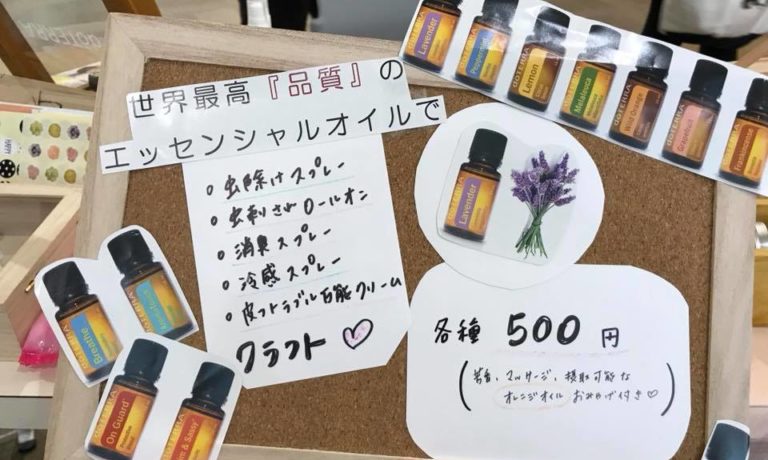 世界最高『品質』の
エッセンシャルオイルで
○ 虫除けスプレー
○ 虫刺されロールオン
○ 消臭スプレー
○ 冷感スプレー
○ 皮フトラブル万能クリーム
クラフト ♡
各種 500 円
(芳香、マッサージ、摂取可能な
オレンジオイル おみやげ付き♡)
Lavender
Peppermint
doTERRA
Lemon
doTERRA
Melaleuca
doTERRA
Wild Orange
doTERRA
Grapefruit
doTERRA
Frankincense
Lavender
Breathe
On Guard
& Sassy